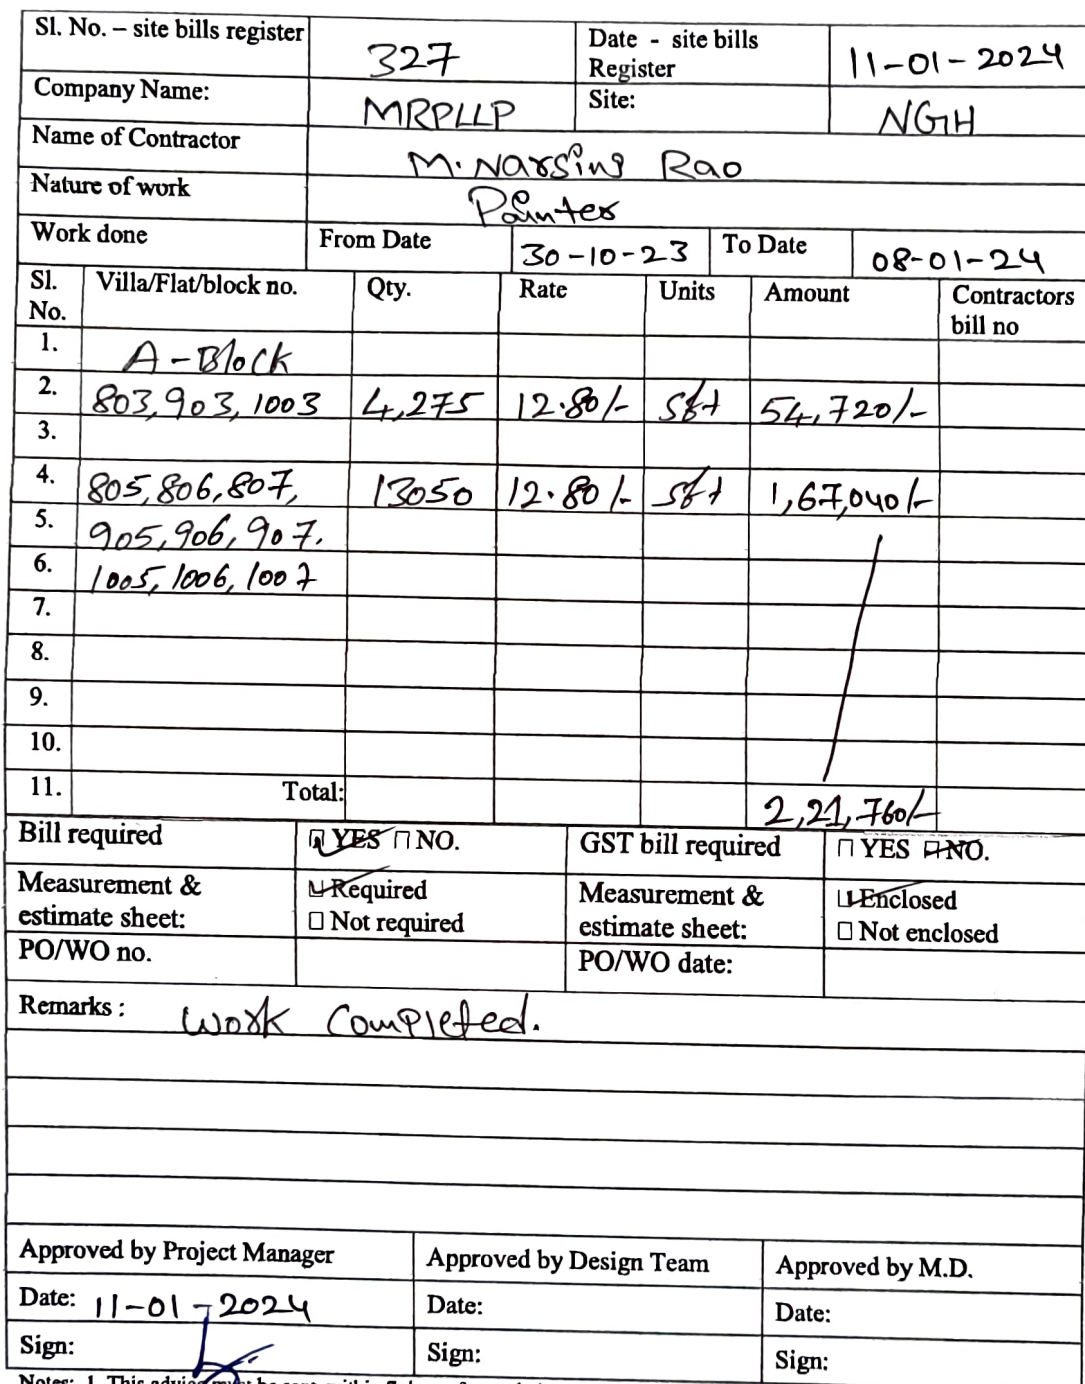 Sl. No. – site bills register 327 Date - site bills Register 11-01-2024
Company Name: MRPLLP Site: NGH
Name of Contractor M. Narsing Rao
Nature of work Painter
Work done From Date 30-10-23 To Date 08-01-24
Sl. No. Villa/Flat/block no. Qty. Rate Units Amount Contractors bill no
1. A-Block
2. 803,903,1003 4,275 12.80/- Sft 54,720/-
3.
4. 805,806,807, 13050 12.80/- Sft 1,67,040/-
5. 905,906,907.
6. 1005,1006,1007
7.
8.
9.
10.
11. Total: 2,21,760/-
Bill required YES NO. GST bill required YES NO.
Measurement & estimate sheet: Required Not required Measurement & estimate sheet: Enclosed Not enclosed
PO/WO no. PO/WO date:
Remarks : Work Completed.
Approved by Project Manager Approved by Design Team Approved by M.D.
Date: 11-01-2024 Date: Date:
Sign: Sign: Sign:
Notes: 1. This